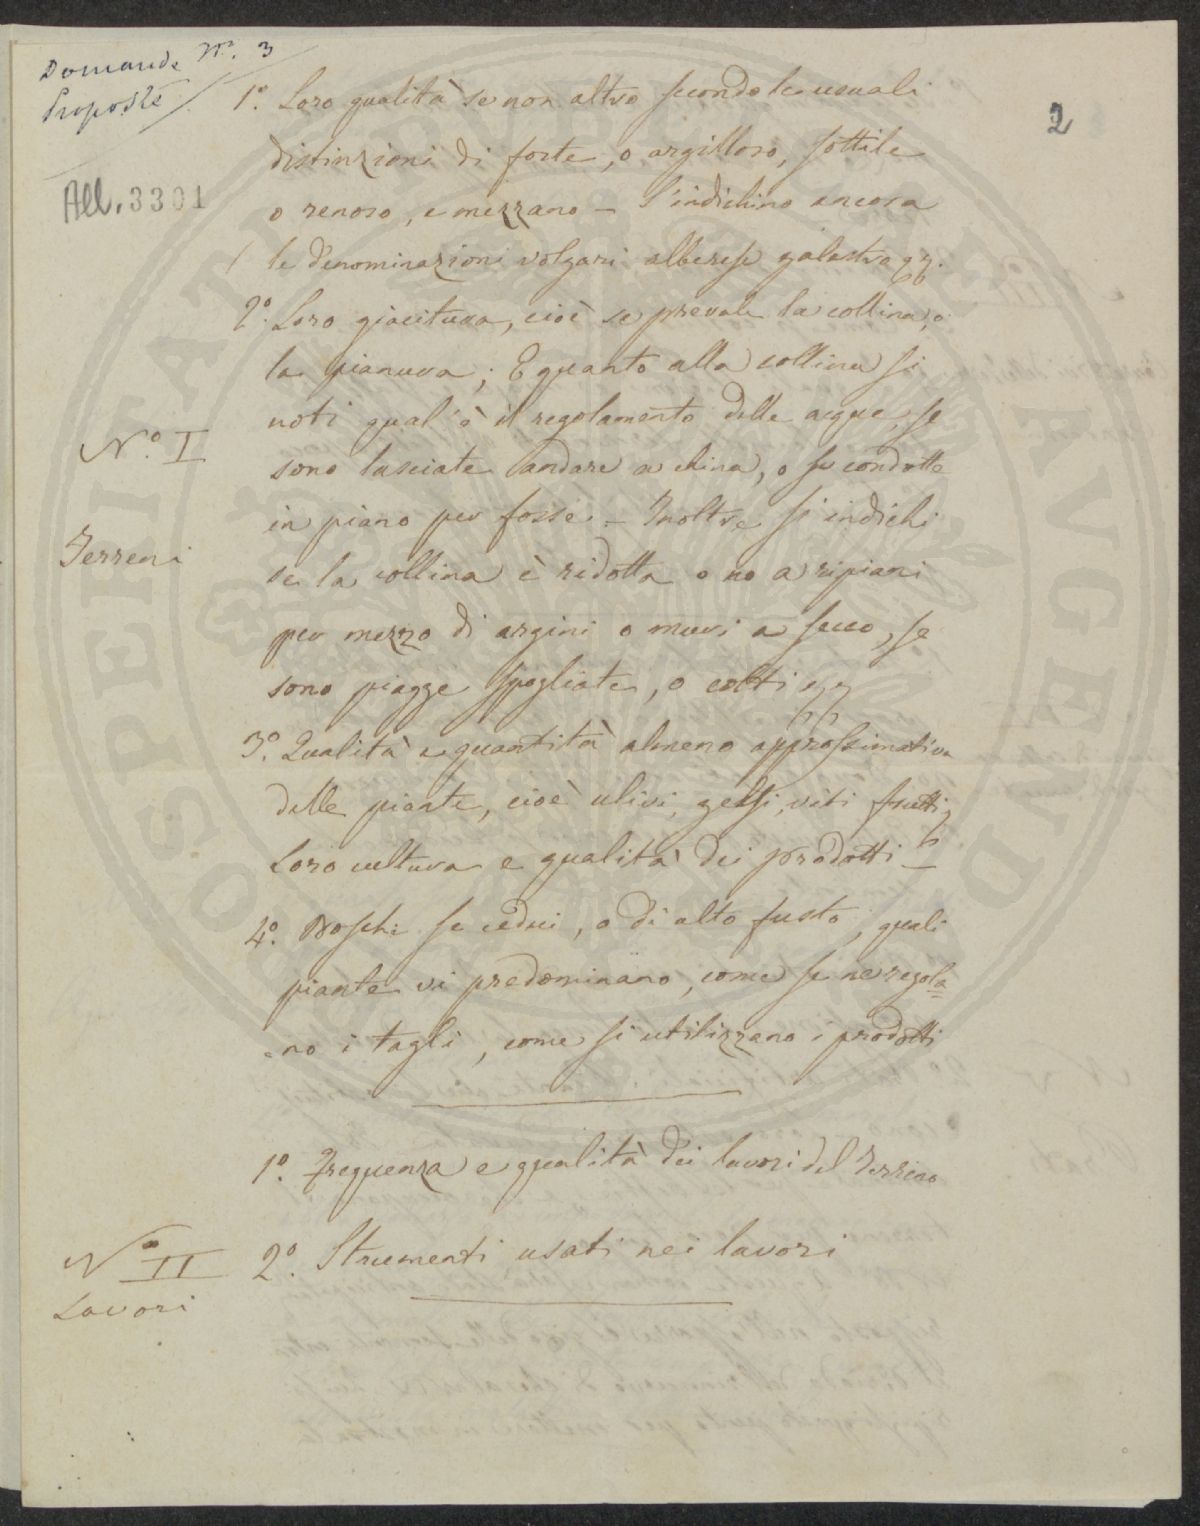 Domande Nº. 3
Proposte
2
All. 3301
1º. Loro qualità se non altro secondo le usuali
distinzioni di forte, o argilloso, sottile
o renoso, e mezzano – S'indichino ancora
le denominazioni volgari alberese galestro
2º. Loro giacitura, cioè se prevale la collina, o
la pianura; E quanto alla collina si
noti qual'è il regolamento delle acque, se
sono lasciate andare a china, o se condotte
in piano per fosse – Inoltre s'indichi
se la collina è ridotta o no a ripiani
per mezzo di argini o muri a secco, se
sono piagge spogliate, o colti
Nº. I
Terreni
3º. Qualità e quantità almeno approssimativa
delle piante, cioè ulivi, gelsi, viti frutti
Loro cultura e qualità dei prodotti –
4º. Boschi se cedui, o di alto fusto, quali
piante vi predominano, come se ne regola=
=no i tagli, come si utilizzano i prodotti
1º. Frequenza e qualità dei lavori del Terreno
2º. Strumenti usati nei lavori
Nº II
Lavori